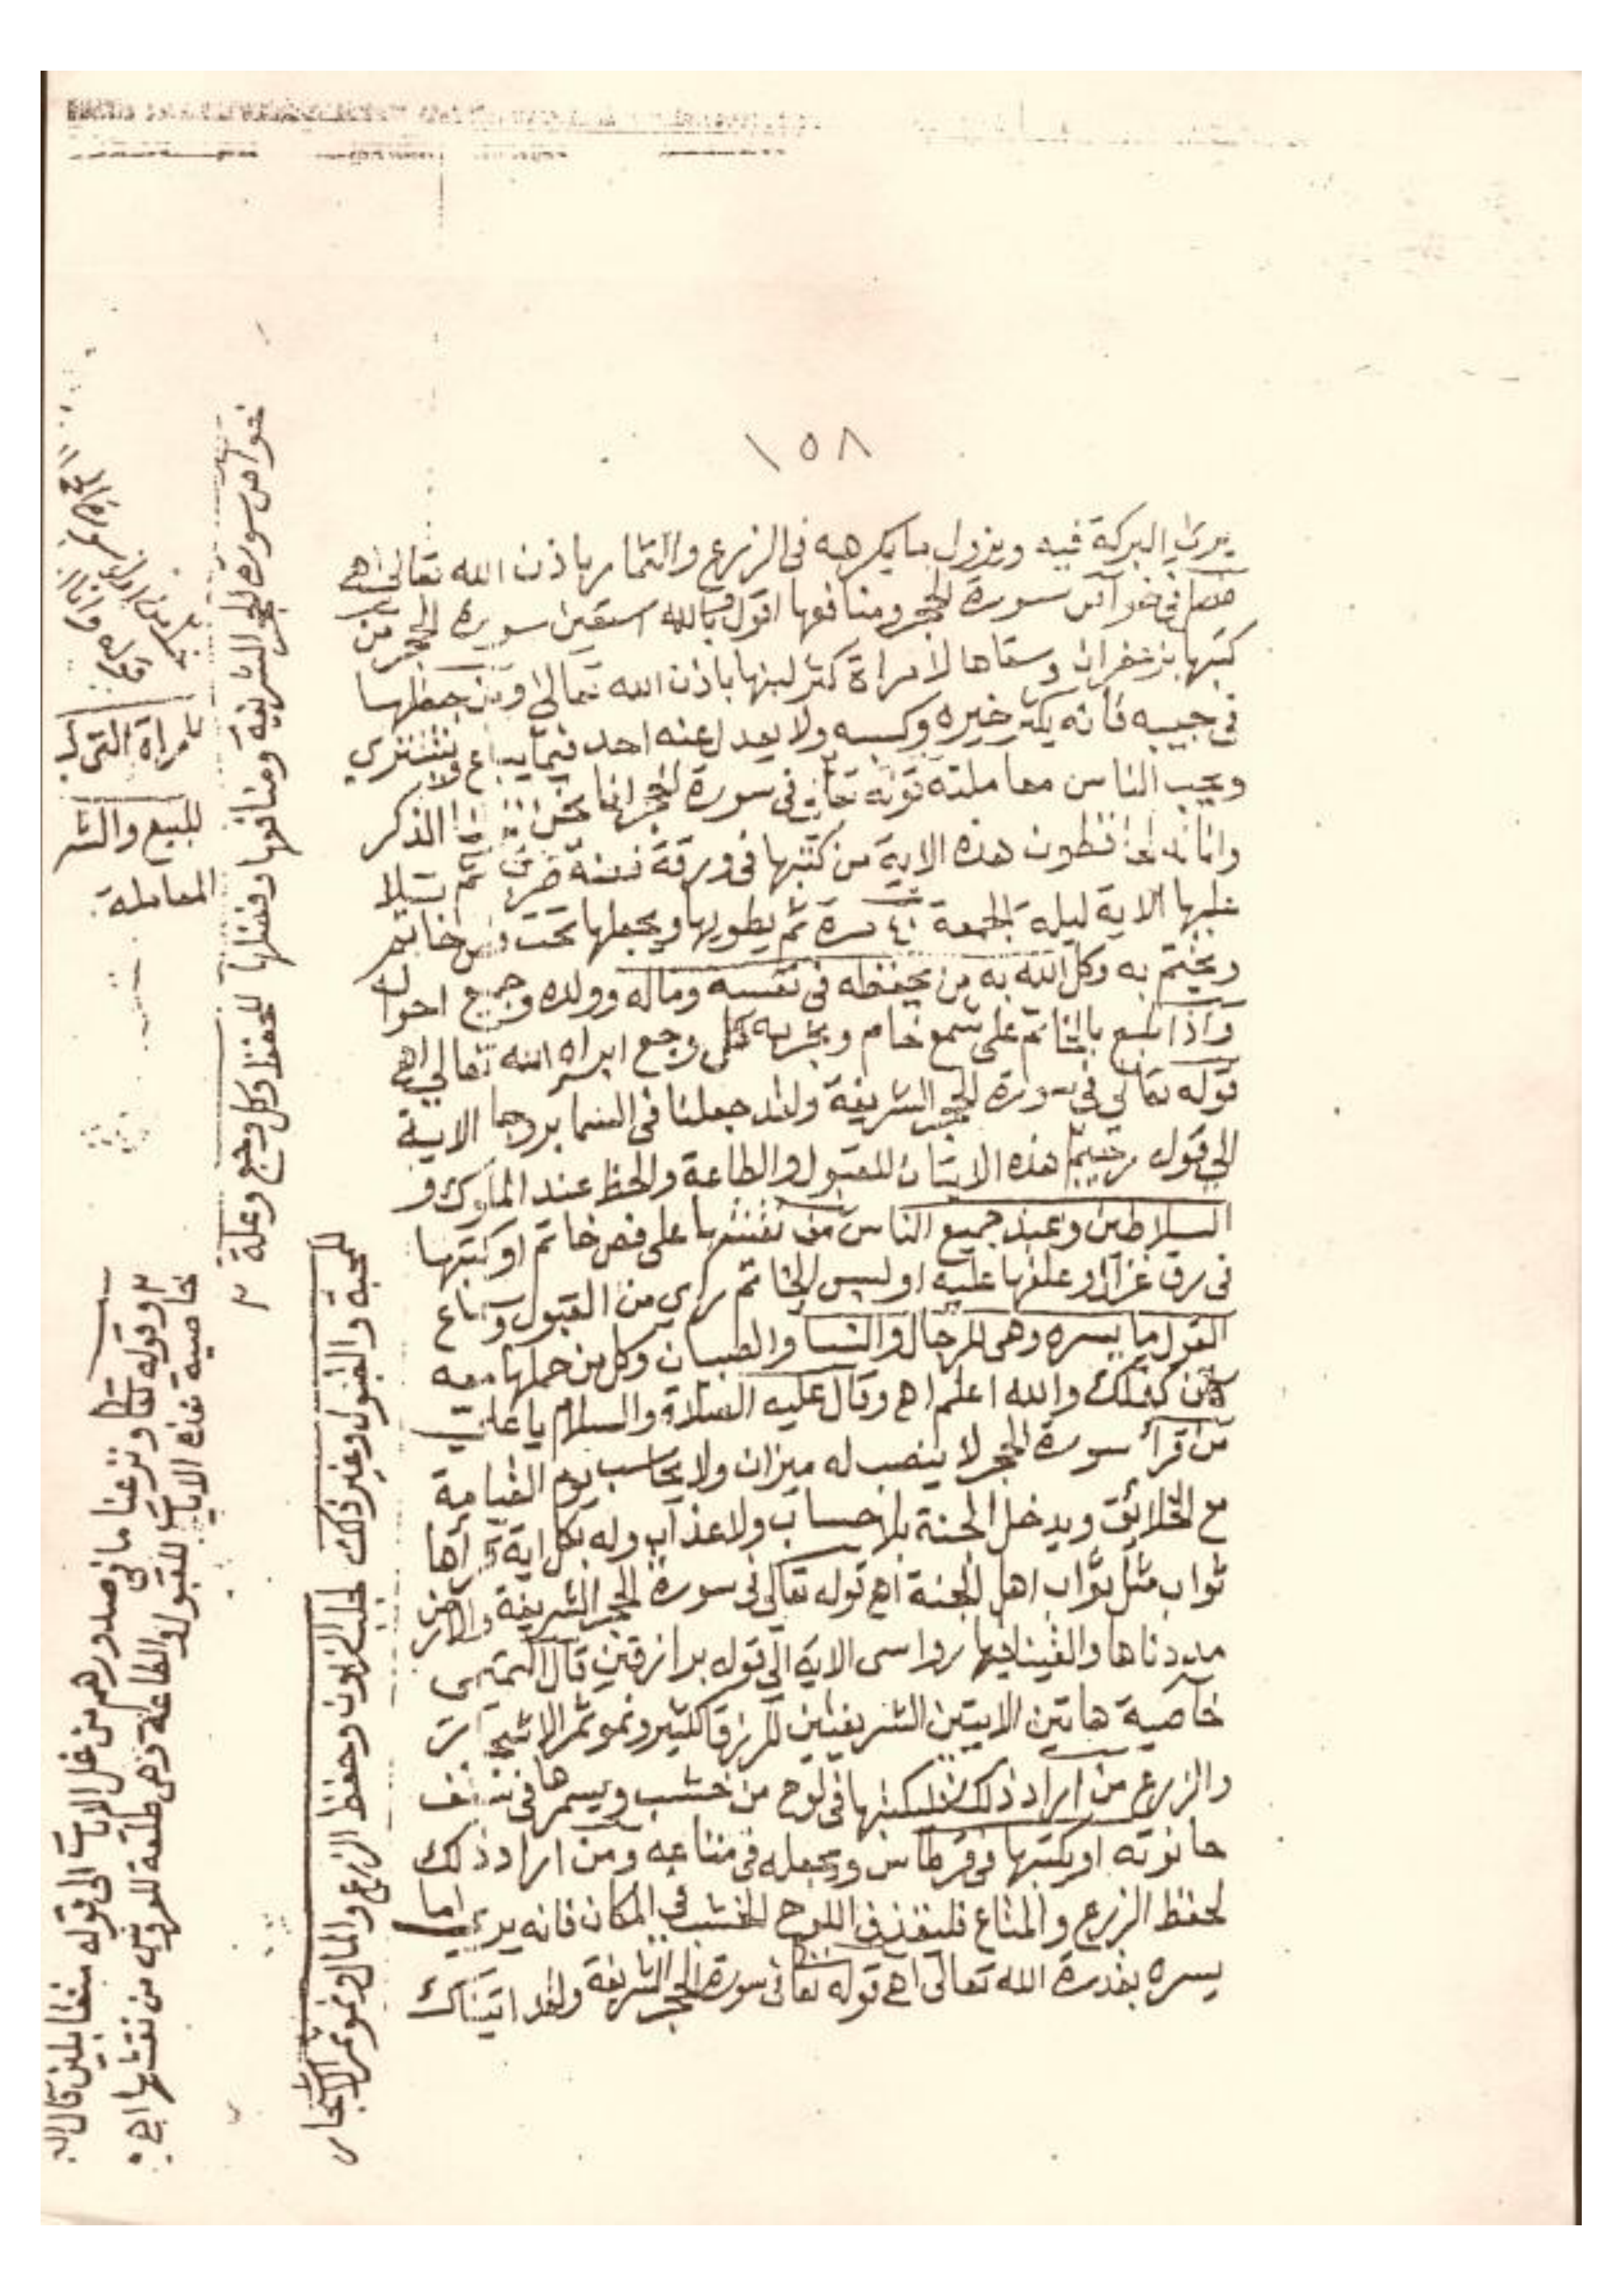 ١٥٨
يرى البركة فيه ويزول ما يكرهه فى الزرع والثمار باذن الله تعالى اهـ
فصل فى خواص سورة الحجر ومنافعها اقول وبالله استعين سورة الحجر من
كتبها بزعفران وسقاها لامراة كثر لبنها باذن الله تعالى ومن جعلها
فى جيبه فانه يكثر خيره وكسبه ولا يعدل عنه احد فيما يباع ويشترى
ويحب الناس معاملته قوله تعالى فى سورة الحجر انا نحن نزلنا الذكر
وانا له لحافظون هذه الاية من كتبها فى ورقة فضة ثم تتلا
عليها الاية ليلة الجمعة ٤٠ مرة ثم يطويها ويجعلها تحت فص خاتم
ويختم به وكل الله به من يحفظه فى نفسه وماله وولده وجميع احواله
واذا طبع بالخاتم على شمع خام وبخر به كل وجع ابراه الله تعالى اهـ
قوله تعالى فى سورة الحجر الشريفة ولقد جعلنا فى السما بروجا الاية
الى قوله رجيم هذه الايتان للقبول والطاعة والحظ عند الملوك و
السلاطين وعند جميع الناس من نقشها على فص خاتم او كتبها
فى رق غزال وعلقها عليه او لبس الخاتم راى من القبول وسماع
القول ما يسره وهى للرجال والنسا والصبيان وكل من حملها معه
كان كذلك والله اعلم اهـ وقال عليه الصلاة والسلام يا على
من قرأ سورة الحجر لا ينصب له ميزان ولا يحاسب يوم القيامة
مع الخلائق ويدخل الجنة بلا حساب ولا عذاب وله بكل اية قرأها
ثواب مثل ثواب اهل الجنة اهـ قوله تعالى فى سورة الحجر الشريفة والارض
مددناها والقينا فيها رواسى الاية الى قوله برازقين قال التميمى
خاصية هاتين الايتين الشريفتين للرزق الكثير ونمو ثمر الاشجار
والزرع من اراد ذلك فليكتبها فى لوح من خشب ويسمرها فى
حانوته او يكتبها فى قرطاس ويجعله فى متاعه ومن اراد ذلك
لحفظ الزرع والمتاع فليدفن اللوح الخشب فى المكان فانه يرى ما
يسره بقدرة الله تعالى اهـ قوله تعالى فى سورة الحجر الشريفة ولقد اتيناك
لامرأة التى
للبيع والشرا
المعاملة
خواص سورة الحجر الشريفة ومنافعها وفضلها للحفظ وكل وجع وعلة
للمحبة والقبول وغير ذلك لجلب الزبون وحفظ الزرع والمال ونمو ثمر الاشجار
وقوله تعالى ونزعنا ما فى صدورهم من غل الايات الى قوله متقابلين قال
خاصية هذه الايات للقبول والطاعة وهى من نقشها